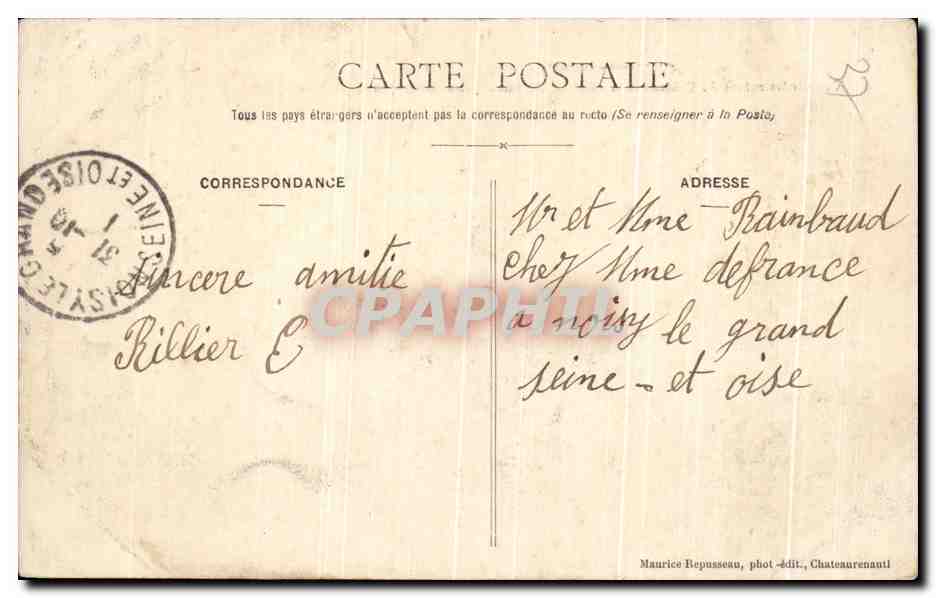 CARTE POSTALE
Tous les pays étrangers n'acceptent pas la correspondance au recto (Se renseigner à la Poste)
CORRESPONDANCE
Sincere amitie
Rillier E
NOISY LE GRAND SEINE ET OISE
31
5
10
ADRESSE
Mr et Mme Rainbaud
chez Mme defrance
a noisy le grand
seine - et oise
CPAPHIL
Maurice Repusseau, phot-édit., Chateaurenault